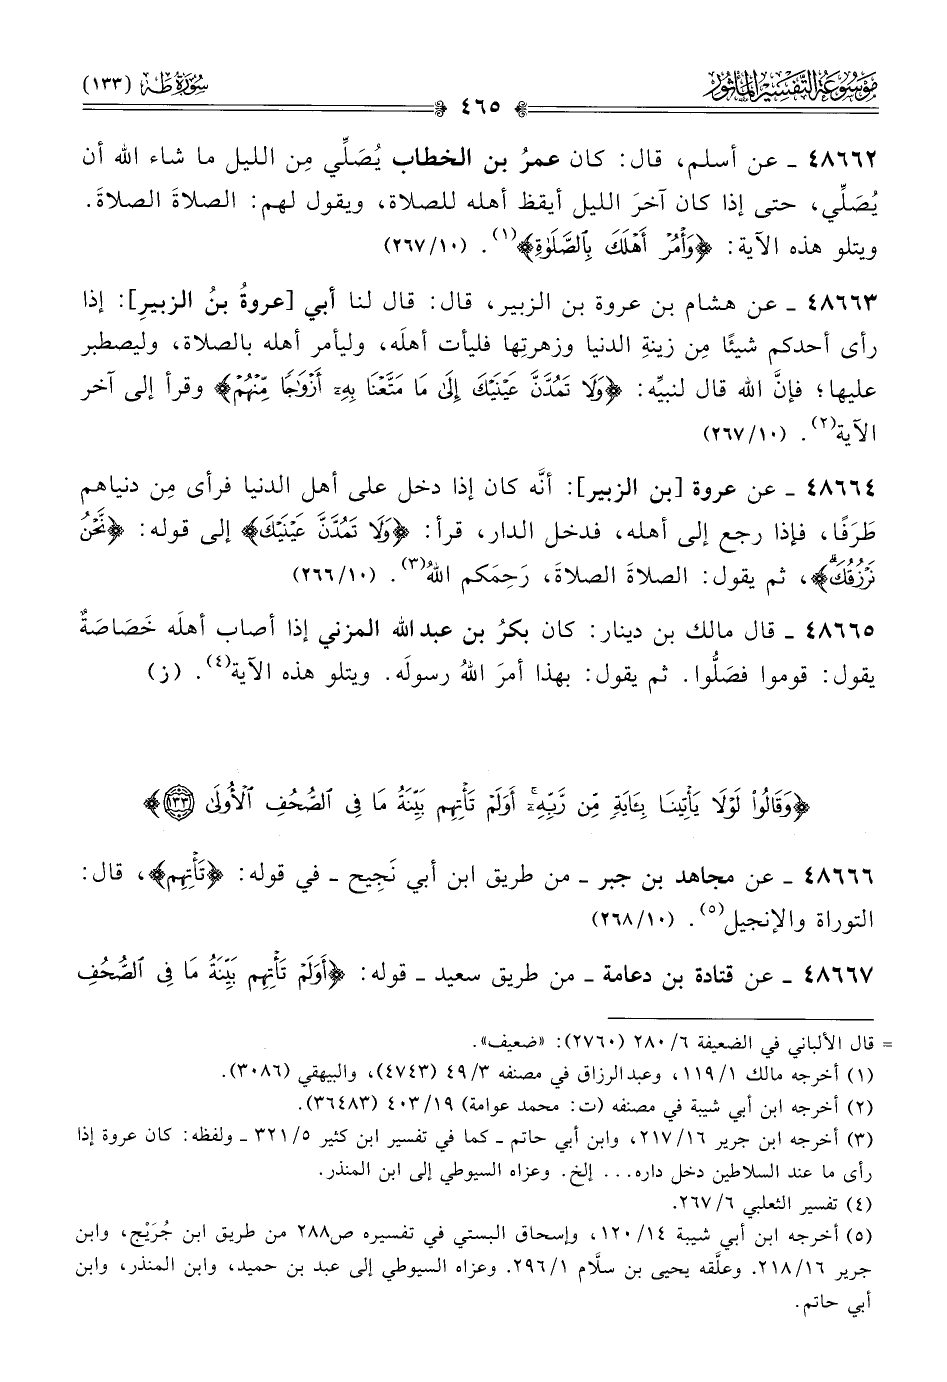 موسوعة التفسير المأثور
سورة طه (١٣٣)
٤٦٥
٤٨٦٦٢ ـ عن أسلم، قال: كان عمرُ بن الخطاب يُصَلِّي مِن الليل ما شاء الله أن
يُصَلِّي، حتى إذا كان آخرَ الليل أيقظ أهله للصلاة، ويقول لهم: الصلاةَ الصلاةَ.
ويتلو هذه الآية: ﴿وَأْمُرْ أَهْلَكَ بِالصَّلَوٰةِ﴾(١). (٢٦٧/١٠)
٤٨٦٦٣ ـ عن هشام بن عروة بن الزبير، قال: قال لنا أبي [عروةُ بنُ الزبيرِ]: إذا
رأى أحدكم شيئًا مِن زينةِ الدنيا وزهرتِها فليأت أهلَه، وليأمر أهله بالصلاة، وليصطبر
عليها؛ فإنَّ الله قال لنبيِّه: ﴿وَلَا تَمُدَّنَّ عَيْنَيْكَ إِلَىٰ مَا مَتَّعْنَا بِهِۦٓ أَزْوَٰجًا مِّنْهُمْ﴾ وقرأ إلى آخر
الآية(٢). (٢٦٧/١٠)
٤٨٦٦٤ ـ عن عروة [بن الزبير]: أنَّه كان إذا دخل على أهل الدنيا فرأى مِن دنياهم
طَرَفًا، فإذا رجع إلى أهله، فدخل الدار، قرأ: ﴿وَلَا تَمُدَّنَّ عَيْنَيْكَ﴾ إلى قوله: ﴿نَّحْنُ
نَرْزُقُكَ﴾، ثم يقول: الصلاةَ الصلاةَ، رَحِمَكم اللهُ(٣). (٢٦٦/١٠)
٤٨٦٦٥ ـ قال مالك بن دينار: كان بكرُ بن عبد الله المزني إذا أصاب أهلَه خَصَاصَةٌ
يقول: قوموا فصَلُّوا. ثم يقول: بهذا أمرَ اللهُ رسولَه. ويتلو هذه الآية(٤). (ز)
﴿وَقَالُوا۟ لَوْلَا يَأْتِينَا بِـَٔايَةٍ مِّن رَّبِّهِۦٓ ۚ أَوَلَمْ تَأْتِهِم بَيِّنَةُ مَا فِى ٱلصُّحُفِ ٱلْأُولَىٰ ١٣٣﴾
٤٨٦٦٦ ـ عن مجاهد بن جبر ـ من طريق ابن أبي نَجِيح ـ في قوله: ﴿تَأْتِهِم﴾، قال:
التوراة والإنجيل(٥). (٢٦٨/١٠)
٤٨٦٦٧ ـ عن قتادة بن دعامة ـ من طريق سعيد ـ قوله: ﴿أَوَلَمْ تَأْتِهِم بَيِّنَةُ مَا فِى ٱلصُّحُفِ
= قال الألباني في الضعيفة ٢٨٠/٦ (٢٧٦٠): «ضعيف».
(١) أخرجه مالك ١١٩/١، وعبد الرزاق في مصنفه ٤٩/٣ (٤٧٤٣)، والبيهقي (٣٠٨٦).
(٢) أخرجه ابن أبي شيبة في مصنفه (ت: محمد عوامة) ٤٠٣/١٩ (٣٦٤٨٣).
(٣) أخرجه ابن جرير ٢١٧/١٦، وابن أبي حاتم ـ كما في تفسير ابن كثير ٣٢١/٥ ـ ولفظه: كان عروة إذا
رأى ما عند السلاطين دخل داره... إلخ. وعزاه السيوطي إلى ابن المنذر.
(٤) تفسير الثعلبي ٢٦٧/٦.
(٥) أخرجه ابن أبي شيبة ١٢٠/١٤، وإسحاق البستي في تفسيره ص٢٨٨ من طريق ابن جُرَيْج، وابن
جرير ٢١٨/١٦. وعلَّقه يحيى بن سلَّام ٢٩٦/١. وعزاه السيوطي إلى عبد بن حميد، وابن المنذر، وابن
أبي حاتم.